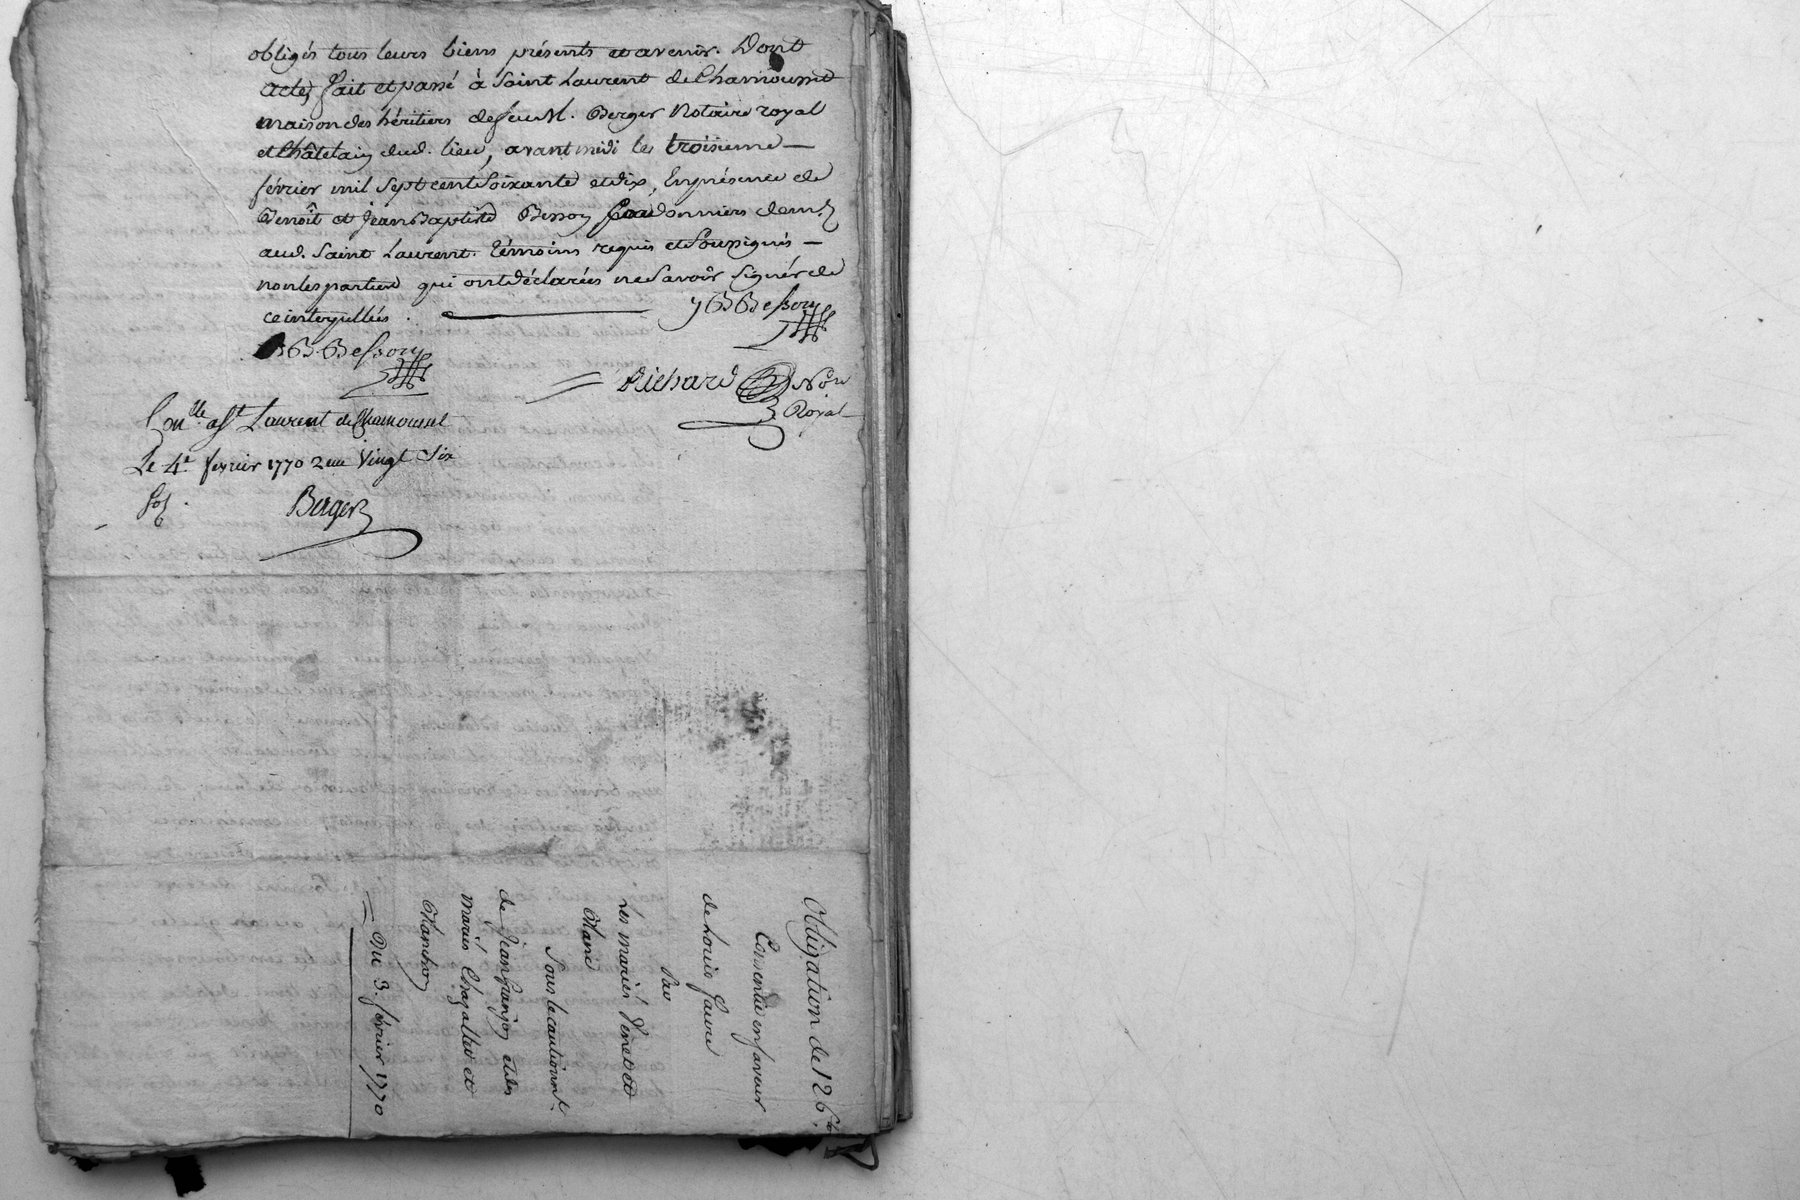 obligés tous leurs biens présents et avenir. Dont
acte, fait et passé à Saint Laurent de Chamousset
maison des héritiers de feu M. Berger Notaire royal
et Châtelain dud. lieu, avant midi le troisieme —
février mil sept cent soixante et dix, En présence de
Benoît et Jean Baptiste Besson Cordonniers dem.
aud. Saint Laurent. témoins requis et soussignés —
non les parties qui ont déclarées ne savoir signer de
ce interpellées.
J B Besson
B. Besson
Richard No.re
Royal
Con.lle a St Laurent de Chamousset
Le 4.e fevrier 1770 Reçu Vingt Six
sols.
Berger
Obligation de 126
Consentie en faveur
de Louis faure
Par
Les mariés Venet et
Sous le cautionnt.
de Jean et les
mariés Chazallet et
Blanchon
— Du 3. février 1770